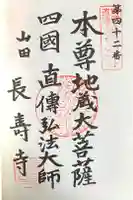 第四十二番
本尊地蔵大菩薩
四國直傳弘法大師
山田
長壽寺